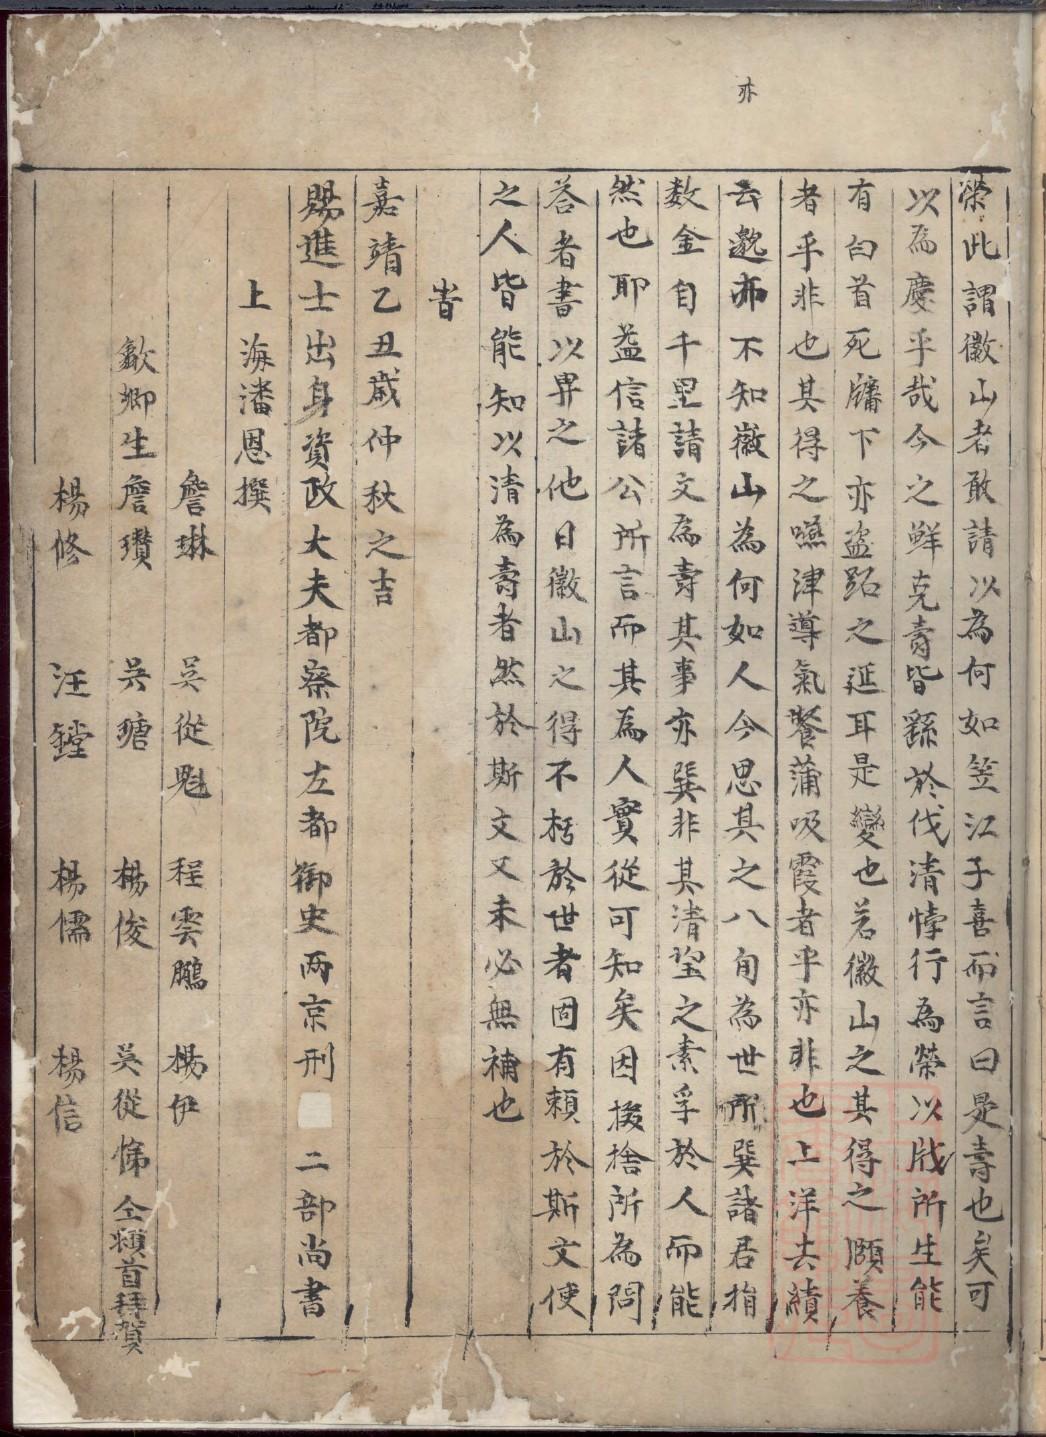 亦
榮此謂徽山者敢請以為何如笠江子喜而言曰是壽也矣可
以為慶乎哉今之鮮克壽皆繇於伐清悖行為榮以戕所生能
有白首死牖下亦盜跖之延耳是變也若徽山之其得之頤養
者乎非也其得之嚥津導氣餐蒲吸霞者乎亦非也上洋去績
云邈亦不知徽山為何如人今思其之八旬為世所巽諸君捐
数金自千里請文為壽其事亦巽非其清望之素孚於人而能
然也耶益信諸公所言而其為人實從可知矣因授捨所為問
荅者書以畀之他日徽山之得不朽於世者固有頼於斯文使
之人皆能知以清為壽者然於斯文又未必無補也
旹
嘉靖乙丑歲仲秋之吉
賜進士出身資政大夫都察院左都御史兩京刑 二部尚書
上海潘恩撰
詹琳 吴從魁 程雲鵬 楊伊
歙鄉生詹瓚 吴瑭 楊俊 吴從悌仝頓首拜賀
楊修 汪鏜 楊儒 楊信